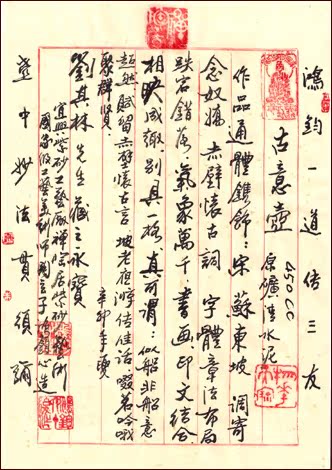 鴻鈞一道传三友
古意壶
原礦清水泥
450CC
作品通體鐫飾：宋蘇東坡調寄
念奴嬌赤壁懷古詞 字體章法布局
跌宕錯落 氣象萬千 書画印文结合
相映成趣 别具一格 真可謂：似船非船意
超然 賦留赤壁懷古言 坡老夜游传佳话 啜茗吟哦
聚禪賢
辛卯年
劉其林先生藏主永寶
宜興紫砂工藝厰禅陶居紫砂藝術
國家级工藝美術師
壶中妙法貫須彌